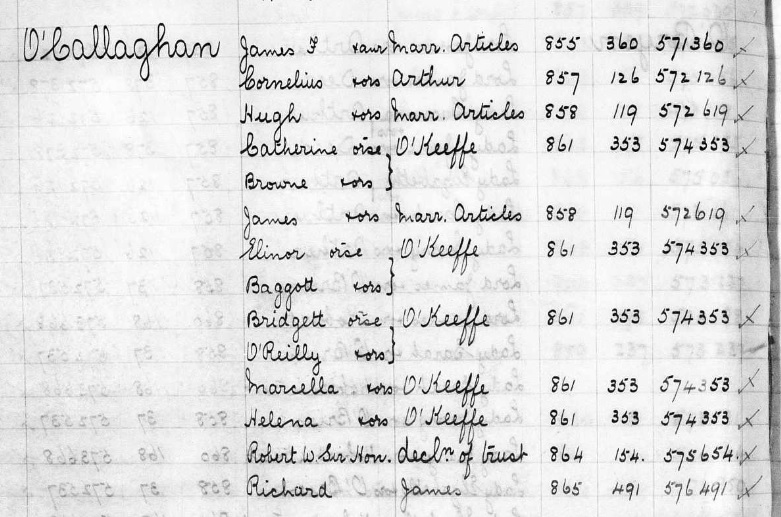 O'Callaghan James F & anr Marr. Articles 855 360 571360
Cornelius & ors Arthur 857 126 572126
Hugh & ors Marr. Articles 858 119 572619
Catherine or'se } O'Keeffe 861 353 574353
Browne & ors }
James & ors Marr. Articles 858 119 572619
Elinor or'se } O'Keeffe 861 353 574353
Baggott & ors }
Bridgett or'se } O'Keeffe 861 353 574353
O'Reilly & ors }
Marcella & ors O'Keeffe 861 353 574353
Helena & ors O'Keeffe 861 353 574353
Robert W Sir Hon. decln of trust 864 154. 575654.
Richard James 865 491 576491